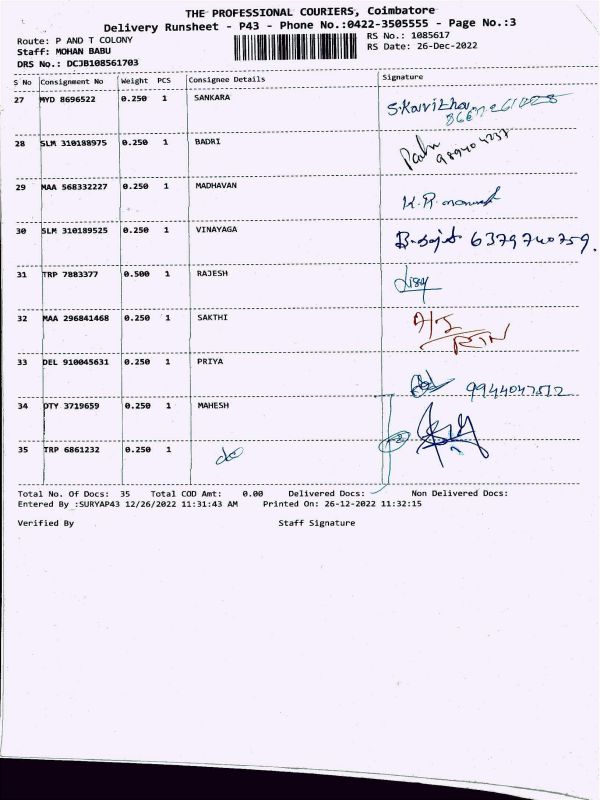 THE PROFESSIONAL COURIERS, Coimbatore
Delivery Runsheet - P43 - Phone No.:0422-3505555 - Page No.:3
Route: P AND T COLONY
RS No.: 1085617
Staff: MOHAN BABU
RS Date: 26-Dec-2022
DRS No.: DCJB108561703
S No Consignment No Weight PCS Consignee Details Signature
27 MYD 8696522 0.250 1 SANKARA S.Kavitha
28 SLM 310188975 0.250 1 BADRI
29 MAA 568332227 0.250 1 MADHAVAN K.R.
30 SLM 310189525 0.250 1 VINAYAGA 6379740759.
31 TRP 7883377 0.500 1 RAJESH
32 MAA 296841468 0.250 1 SAKTHI RTN
33 DEL 910045631 0.250 1 PRIYA 9944047512
34 OTY 3719659 0.250 1 MAHESH
35 TRP 6861232 0.250 1 do
Total No. Of Docs: 35 Total COD Amt: 0.00 Delivered Docs: Non Delivered Docs:
Entered By :SURYAP43 12/26/2022 11:31:43 AM Printed On: 26-12-2022 11:32:15
Verified By Staff Signature